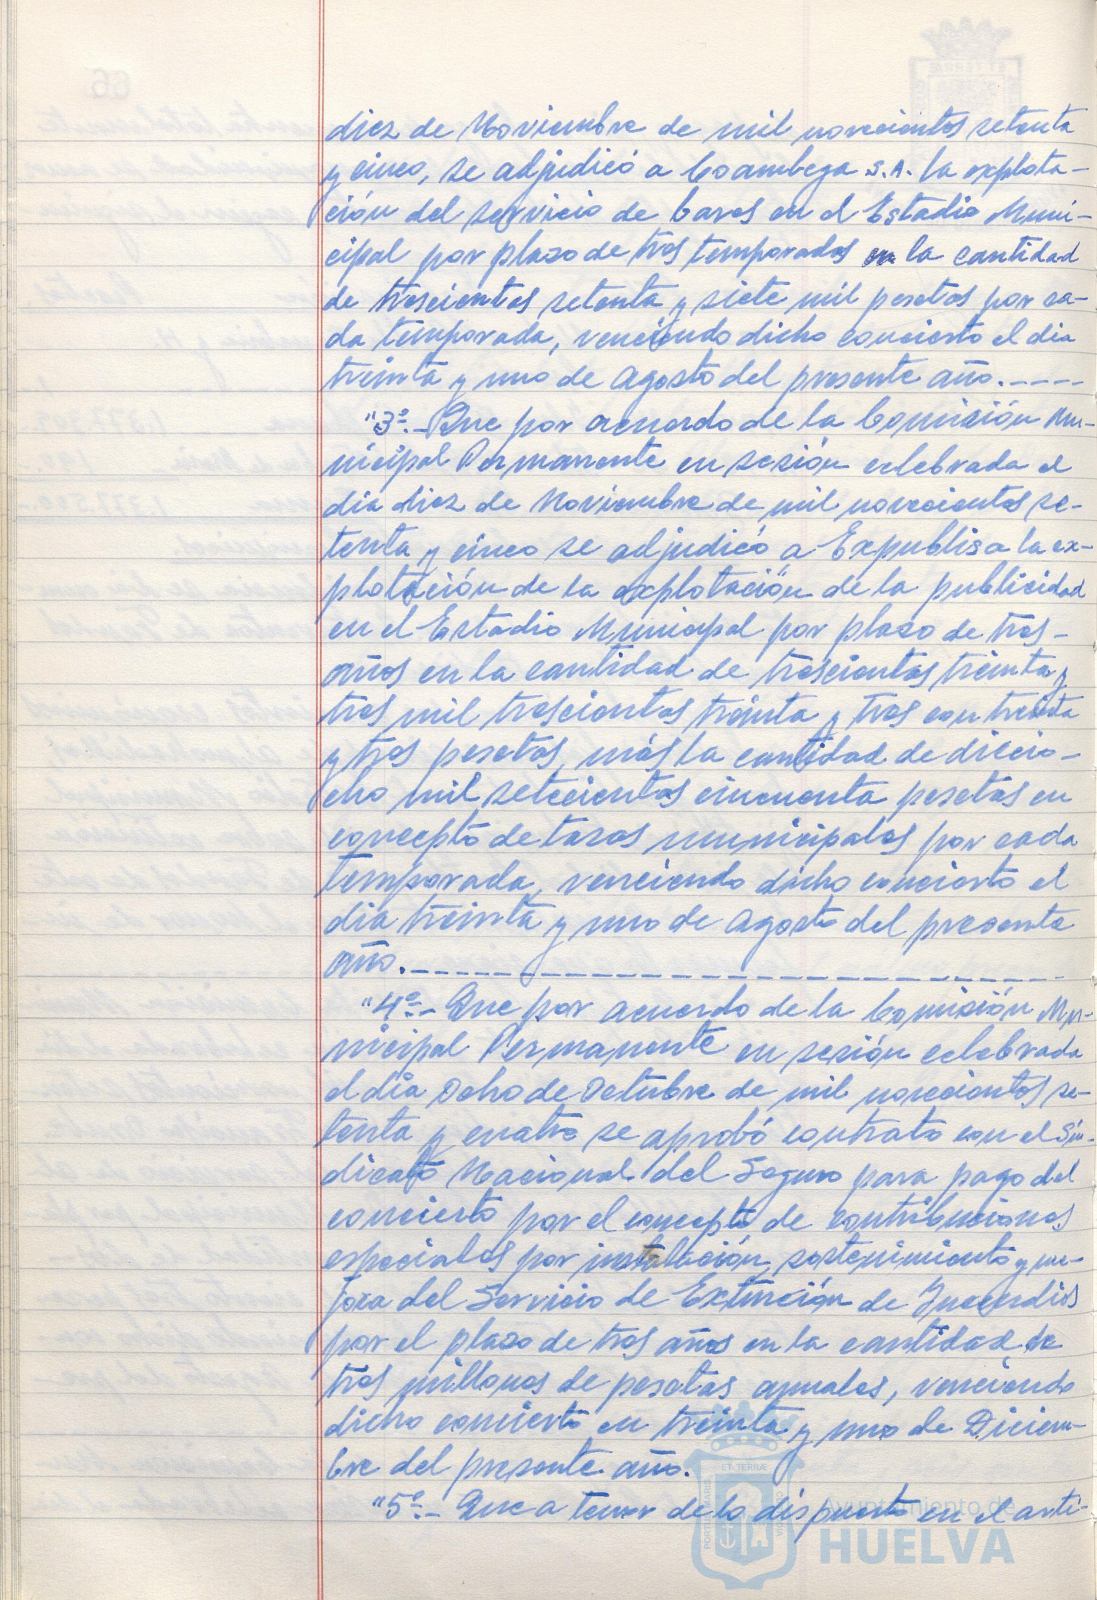 diez de Noviembre de mil novecientos setenta
y cinco, se adjudicó a Coambega S.A. la explota-
ción del servicio de bares en el Estadio Muni-
cipal por plazo de tres temporadas en la cantidad
de trescientas setenta y siete mil pesetas por ca-
da temporada, venciendo dicho concierto el día
treinta y uno de Agosto del presente año.----
"3º.- Que por acuerdo de la Comisión Mu-
nicipal Permanente en sesión celebrada el
día diez de Noviembre de mil novecientos se-
tenta y cinco se adjudicó a Expublisa la ex-
plotación de la explotación de la publicidad
en el Estadio Municipal por plazo de tres-
años en la cantidad de trescientas treinta y
tres mil trescientas treinta y tres con treinta
y tres pesetas, más la cantidad de diecio-
cho mil setecientas cincuenta pesetas en
concepto de tasas municipales por cada
temporada, venciendo dicho concierto el
día treinta y uno de Agosto del presente
año.-----------------------------
"4º.- Que por acuerdo de la Comisión Mu-
nicipal Permanente en sesión celebrada
el día ocho de Octubre de mil novecientos se-
tenta y cuatro se aprobó contrato con el Sin-
dicato Nacional del Seguro para pago del
concierto por el concepto de contribuciones
especiales por instalación, sostenimiento y me-
jora del Servicio de Extinción de Incendios
por el plazo de tres años en la cantidad de
tres millones de pesetas anuales, venciendo
dicho concierto en treinta y uno de Diciem-
bre del presente año.
"5º.- Que a tenor de lo dispuesto en el artí-
Ayuntamiento de
HUELVA